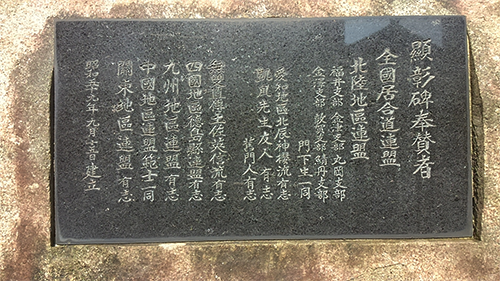 顕彰碑奉賛者
全國居合道連盟
北陸地區連盟
福井支部 会津支部 丸岡支部
金津支部 敦賀支部 晴丹支部
門下生一同
愛知地區北辰神櫻流有志
先生友人 有志
門人有志
土佐英信流有志
四國地區徳島縣連盟有志
九州地區連盟 有志
中國地區連盟範士一同
關東地區連盟 有志
昭和五十九年九月吉日建立